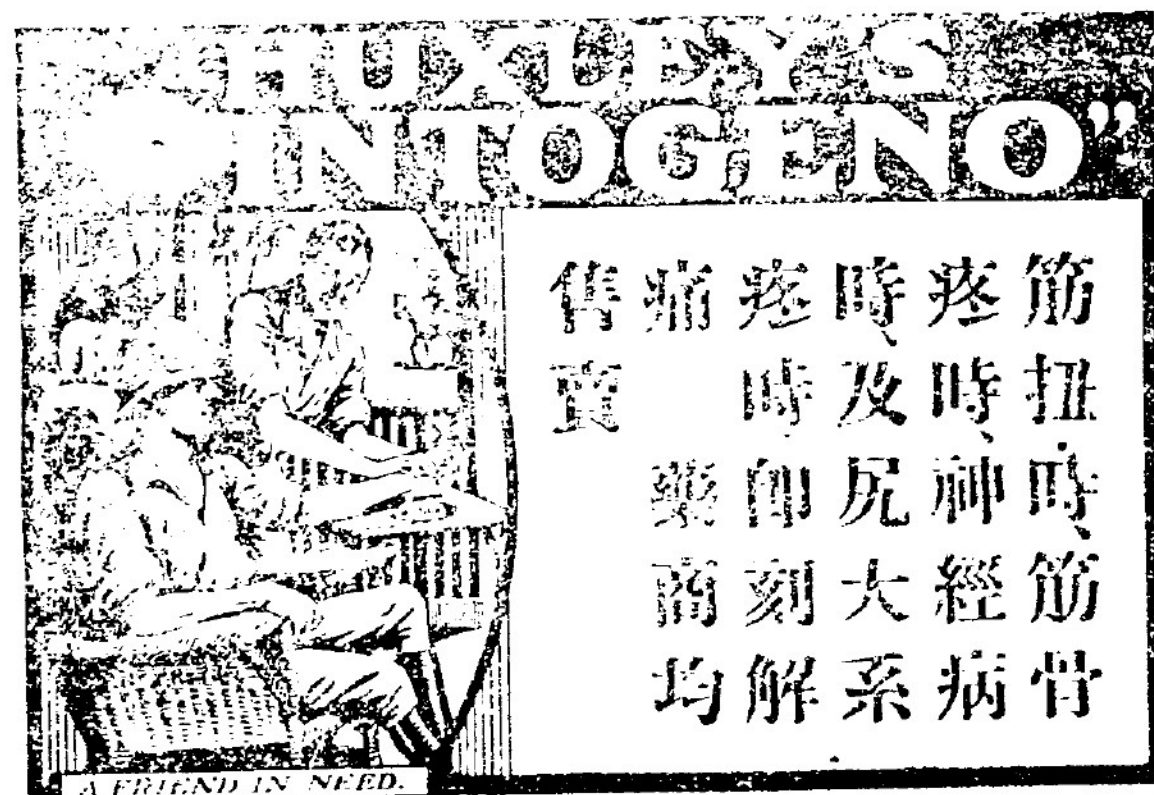 "HUXLEY'S
INTOGENO”
筋扭時、筋骨
疼時、神經病
時、及尻大系
疼時即刻解
痛 藥商均
售賣
A FRIEND IN NEED.